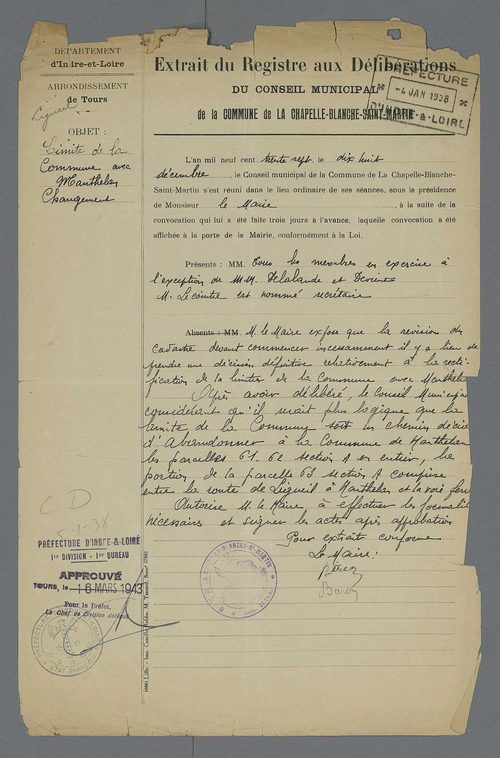 DÉPARTEMENT
d'In're-et-Loire
ARRONDISSEMENT
de Tours
Ligueil
OBJET :
Limite de la
Commune avec
Manthelan
Changement
Extrait du Registre aux Délibérations
DU CONSEIL MUNICIPAL
de la COMMUNE de LA CHAPELLE-BLANCHE-SAINT-MARTIN
PRÉFECTURE
-4 JAN 1938
D'INDRE-&-LOIRE
L'an mil neuf cent trente sept le dix huit
décembre, le Conseil municipal de la Commune de La Chapelle-Blanche-
Saint-Martin s'est réuni dans le lieu ordinaire de ses séances, sous la présidence
de Monsieur le Maire, à la suite de la
convocation qui lui a été faite trois jours à l'avance, laquelle convocation a été
affichée à la porte de la Mairie, conformément à la Loi.
Présents : MM. Tous les membres en exercice à
l'exception de MM. Delalande et
M. Lecomte est nommé secrétaire
Absents : MM. M. le Maire expose que la revision du
cadastre devant commencer incessamment il y a lieu de
prendre une décision définitive relativement à la recti-
fication de la limite de la Commune avec Manthelan
Après avoir délibéré, le Conseil Municipal
considérant qu'il serait plus logique que la
limite de la Commune soit un chemin décide
d'abandonner à la Commune de Manthelan
les parcelles 61. 62 section A en entier, la
portion de la parcelle 63 section A comprise
entre la route de Ligueil à Manthelan et la voie ferrée
Autorise M. le Maire à effectuer les formalités
nécessaires et signer les actes après approbation
Pour extrait conforme
Le Maire :
Baron
Baron
C D
PRÉFECTURE D'INDRE-&-LOIRE
1re DIVISION - 1er BUREAU
APPROUVÉ
TOURS, le 16 MARS 1943
Pour le Préfet,
Le Chef de Division délégué
PRÉFECTURE D'INDRE-&-LOIRE
ÉTAT FRANÇAIS